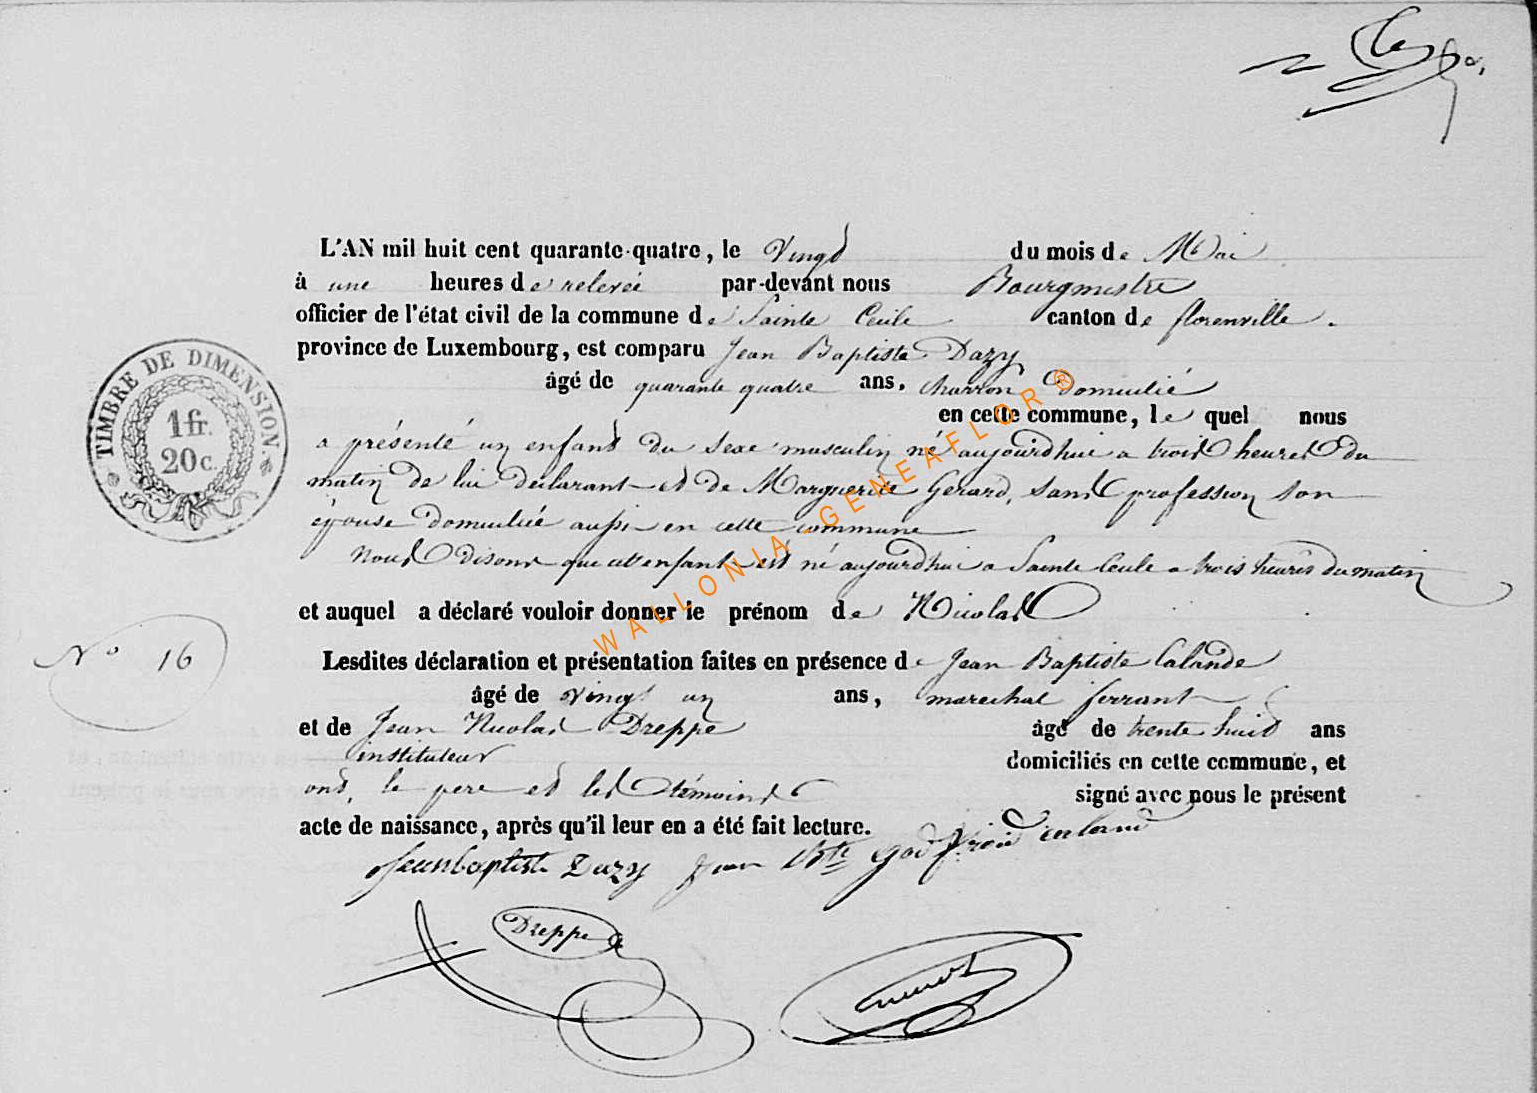 L'AN mil huit cent quarante-quatre, le Vingt du mois de Mai
à une heures de relevée par-devant nous Bourgmestre
officier de l'état civil de la commune de Sainte Cecile canton de florenville.
province de Luxembourg, est comparu Jean Baptiste Dazy
âgé de quarante quatre ans. charron Domicilié
en cette commune, le quel nous
a présenté un enfant du sexe masculin né aujourd'hui a trois heures du
matin de lui déclarant et de Marguerite Gerard, sans profession son
épouse domiciliée aussi en cette commune
Nous Disons que cet enfant est né aujourd'hui a Sainte Cecile a trois heures du matin
et auquel a déclaré vouloir donner le prénom de Nicolas
No 16
Lesdites déclaration et présentation faites en présence de Jean Baptiste Calande
âgé de vingt un ans, marechal ferrant
et de Jean Nicolas Dreppe âgé de trente huit ans
instituteur domiciliés en cette commune, et
ont, le pere et les témoins signé avec nous le présent
acte de naissance, après qu'il leur en a été fait lecture.
Jeanbaptiste Dazy Jean Bte
Dreppe
TIMBRE DE DIMENSION.
1 fr.
20 c.
WALLONIA-GENEAFLOR®